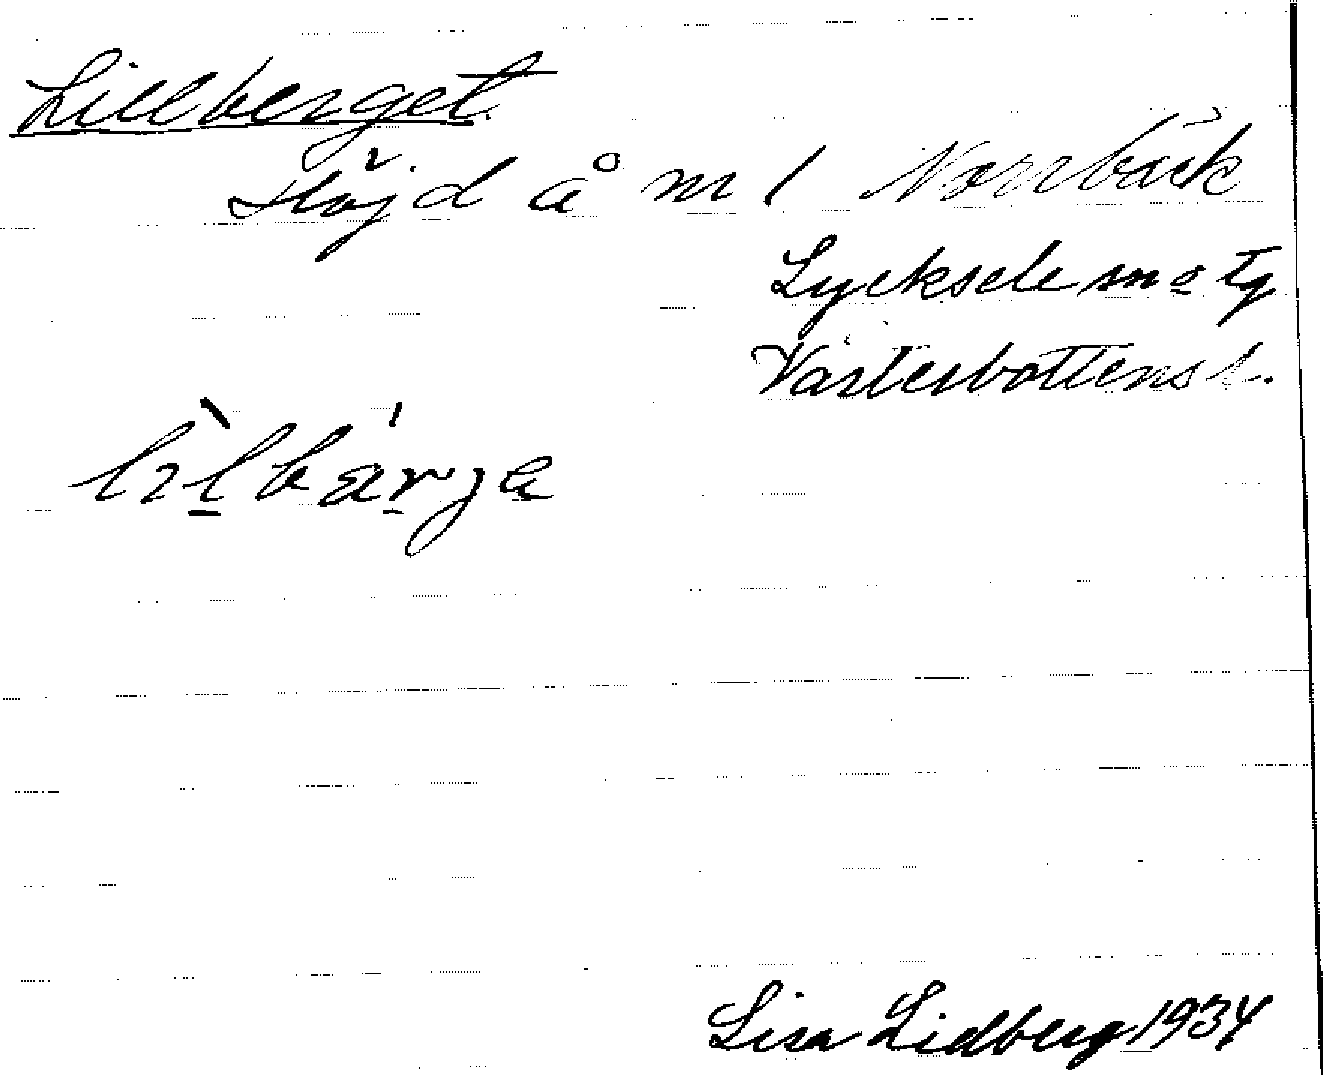 Lillberget.
Höjd å m 1 Norrbäck
Lycksele sn o tg
Västerbottens l.
Lisa Lidberg 1934